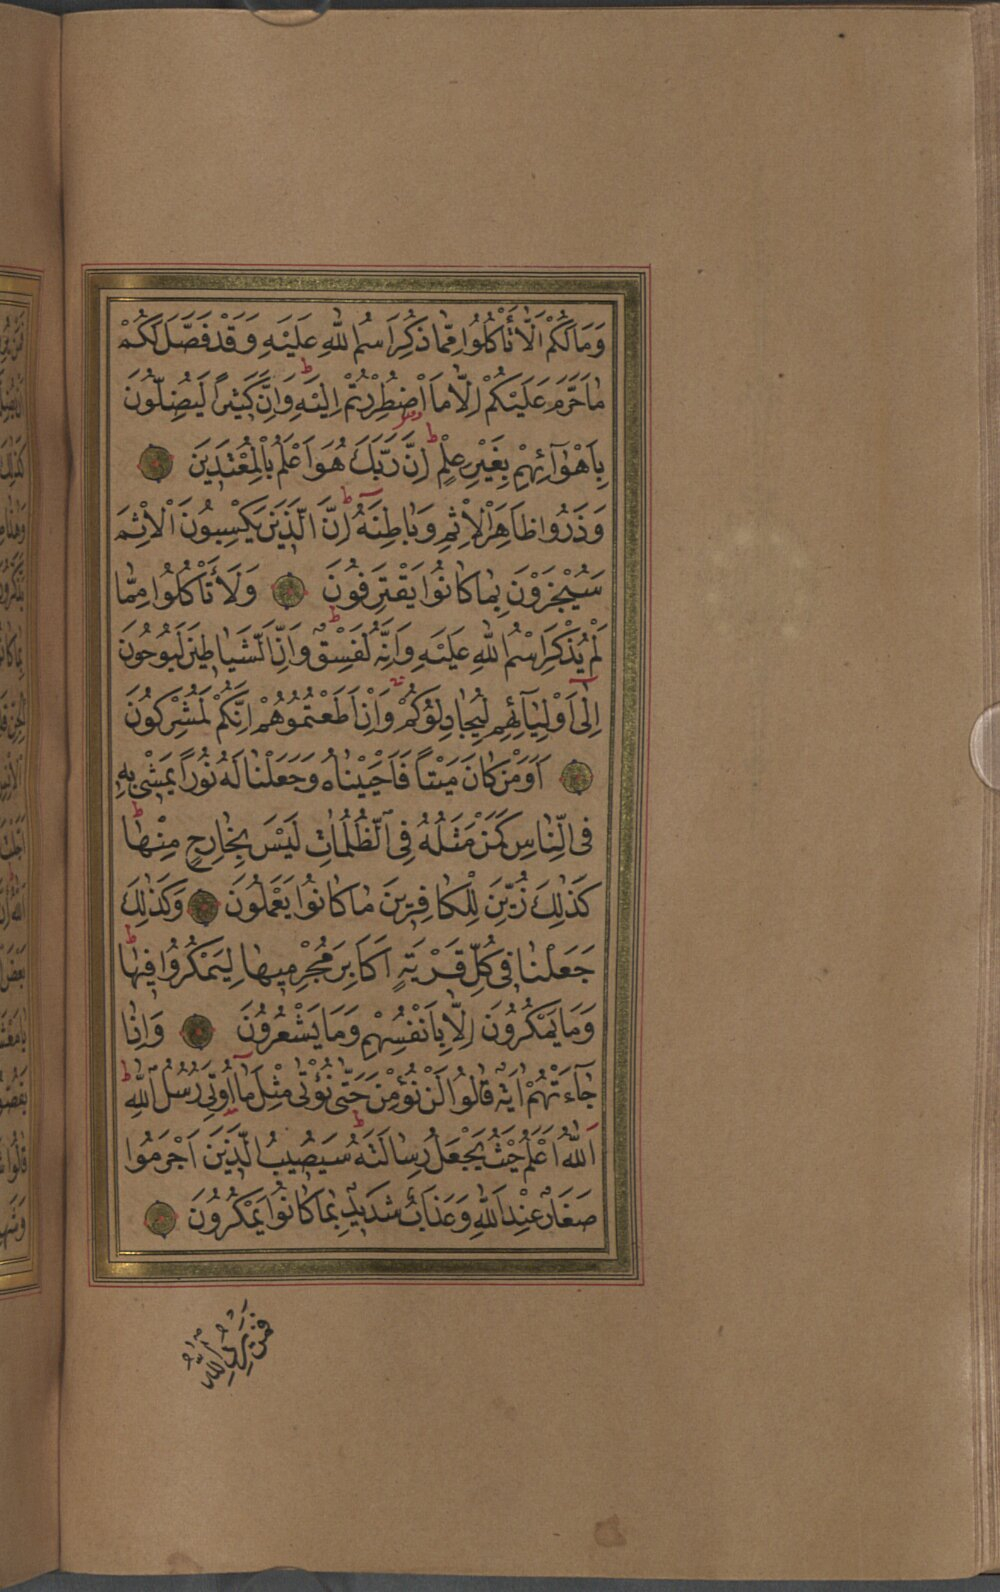 وَمَا لَكُمْ اَلَّا تَأْكُلُوا مِمَّا ذُكِرَ اسْمُ اللّٰهِ عَلَيْهِ وَقَدْ فَصَّلَ لَكُمْ
مَا حَرَّمَ عَلَيْكُمْ اِلَّا مَا اضْطُرِرْتُمْ اِلَيْهِ ط وَاِنَّ كَثِيرًا لَيُضِلُّونَ
بِاَهْوَآئِهِمْ بِغَيْرِ عِلْمٍ ط اِنَّ رَبَّكَ هُوَ اَعْلَمُ بِالْمُعْتَدِينَ
وَذَرُوا ظَاهِرَ الْاِثْمِ وَبَاطِنَهُ ط اِنَّ الَّذِينَ يَكْسِبُونَ الْاِثْمَ
سَيُجْزَوْنَ بِمَا كَانُوا يَقْتَرِفُونَ وَلَا تَأْكُلُوا مِمَّا
لَمْ يُذْكَرِ اسْمُ اللّٰهِ عَلَيْهِ وَاِنَّهُ لَفِسْقٌ ط وَاِنَّ الشَّيَاطِينَ لَيُوحُونَ
اِلٰى اَوْلِيَآئِهِمْ لِيُجَادِلُوكُمْ وَاِنْ اَطَعْتُمُوهُمْ اِنَّكُمْ لَمُشْرِكُونَ
اَوَمَنْ كَانَ مَيْتًا فَاَحْيَيْنَاهُ وَجَعَلْنَا لَهُ نُورًا يَمْشِي بِهِ
فِي النَّاسِ كَمَنْ مَثَلُهُ فِي الظُّلُمَاتِ لَيْسَ بِخَارِجٍ مِنْهَا ط
كَذٰلِكَ زُيِّنَ لِلْكَافِرِينَ مَا كَانُوا يَعْمَلُونَ وَكَذٰلِكَ
جَعَلْنَا فِي كُلِّ قَرْيَةٍ اَكَابِرَ مُجْرِمِيهَا لِيَمْكُرُوا فِيهَا ط
وَمَا يَمْكُرُونَ اِلَّا بِاَنْفُسِهِمْ وَمَا يَشْعُرُونَ وَاِذَا
جَآءَتْهُمْ اٰيَةٌ قَالُوا لَنْ نُؤْمِنَ حَتّٰى نُؤْتٰى مِثْلَ مَا اُوتِيَ رُسُلُ اللّٰهِ ط
اَللّٰهُ اَعْلَمُ حَيْثُ يَجْعَلُ رِسَالَتَهُ ط سَيُصِيبُ الَّذِينَ اَجْرَمُوا
صَغَارٌ عِنْدَ اللّٰهِ وَعَذَابٌ شَدِيدٌ بِمَا كَانُوا يَمْكُرُونَ
فَمَنْ يُرِدِ اللّٰهُ